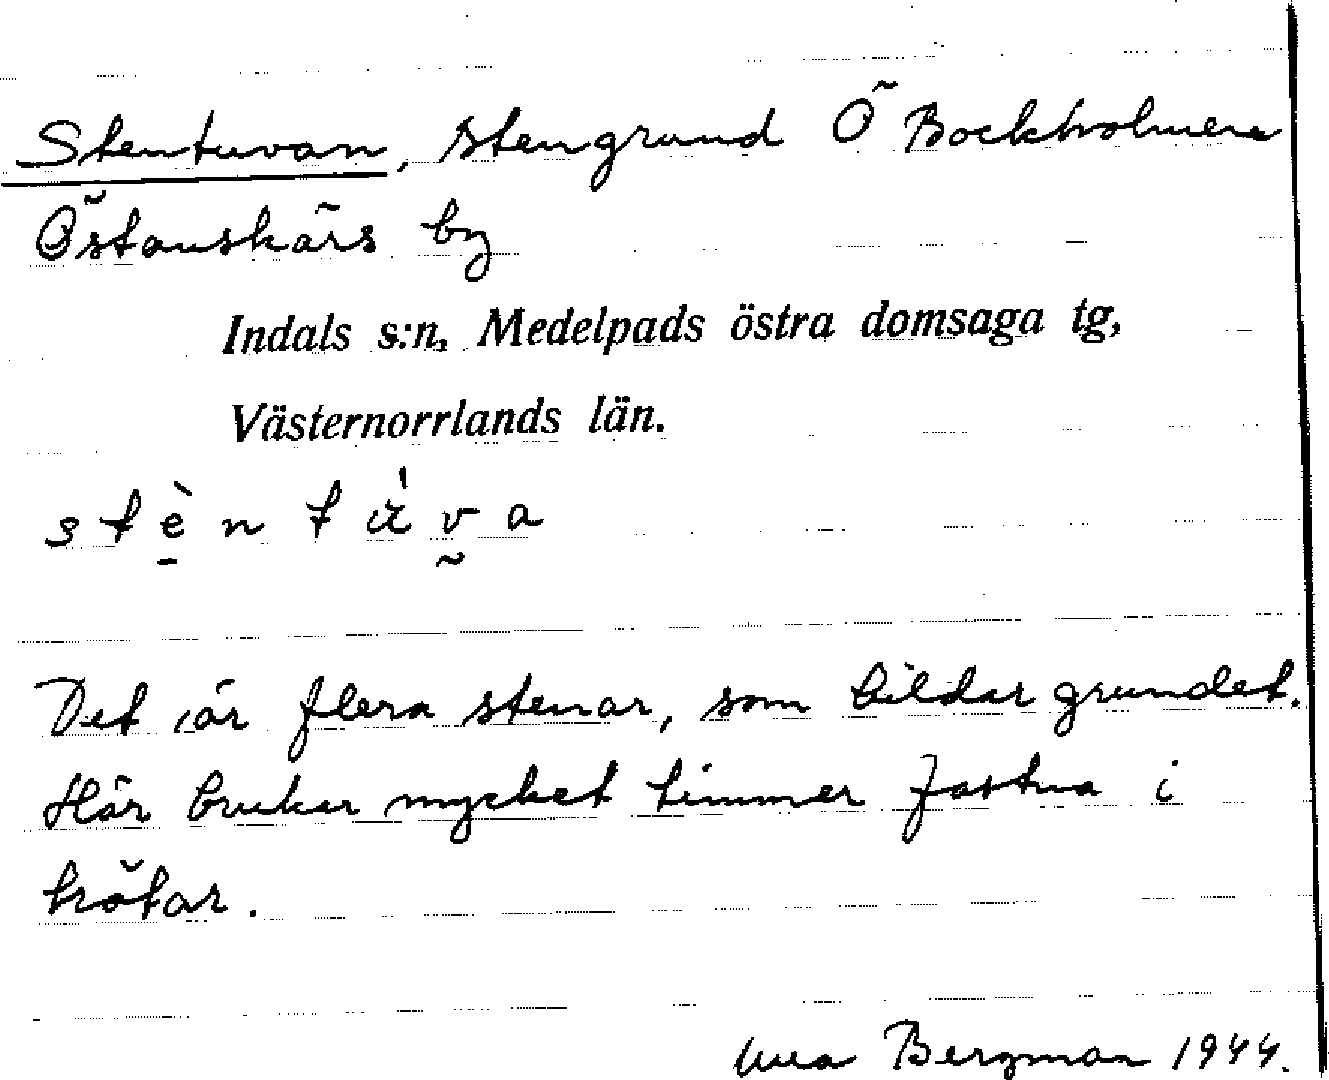 Stentuvan, stengrund Ö Bockholmen
Östanskärs by
Indals s:n, Medelpads östra domsaga tg,
Västernorrlands län.
Det är flera stenar, som bildar grundet.
Här brukar mycket timmer fastna i
bråtar.
Bergman 1944.